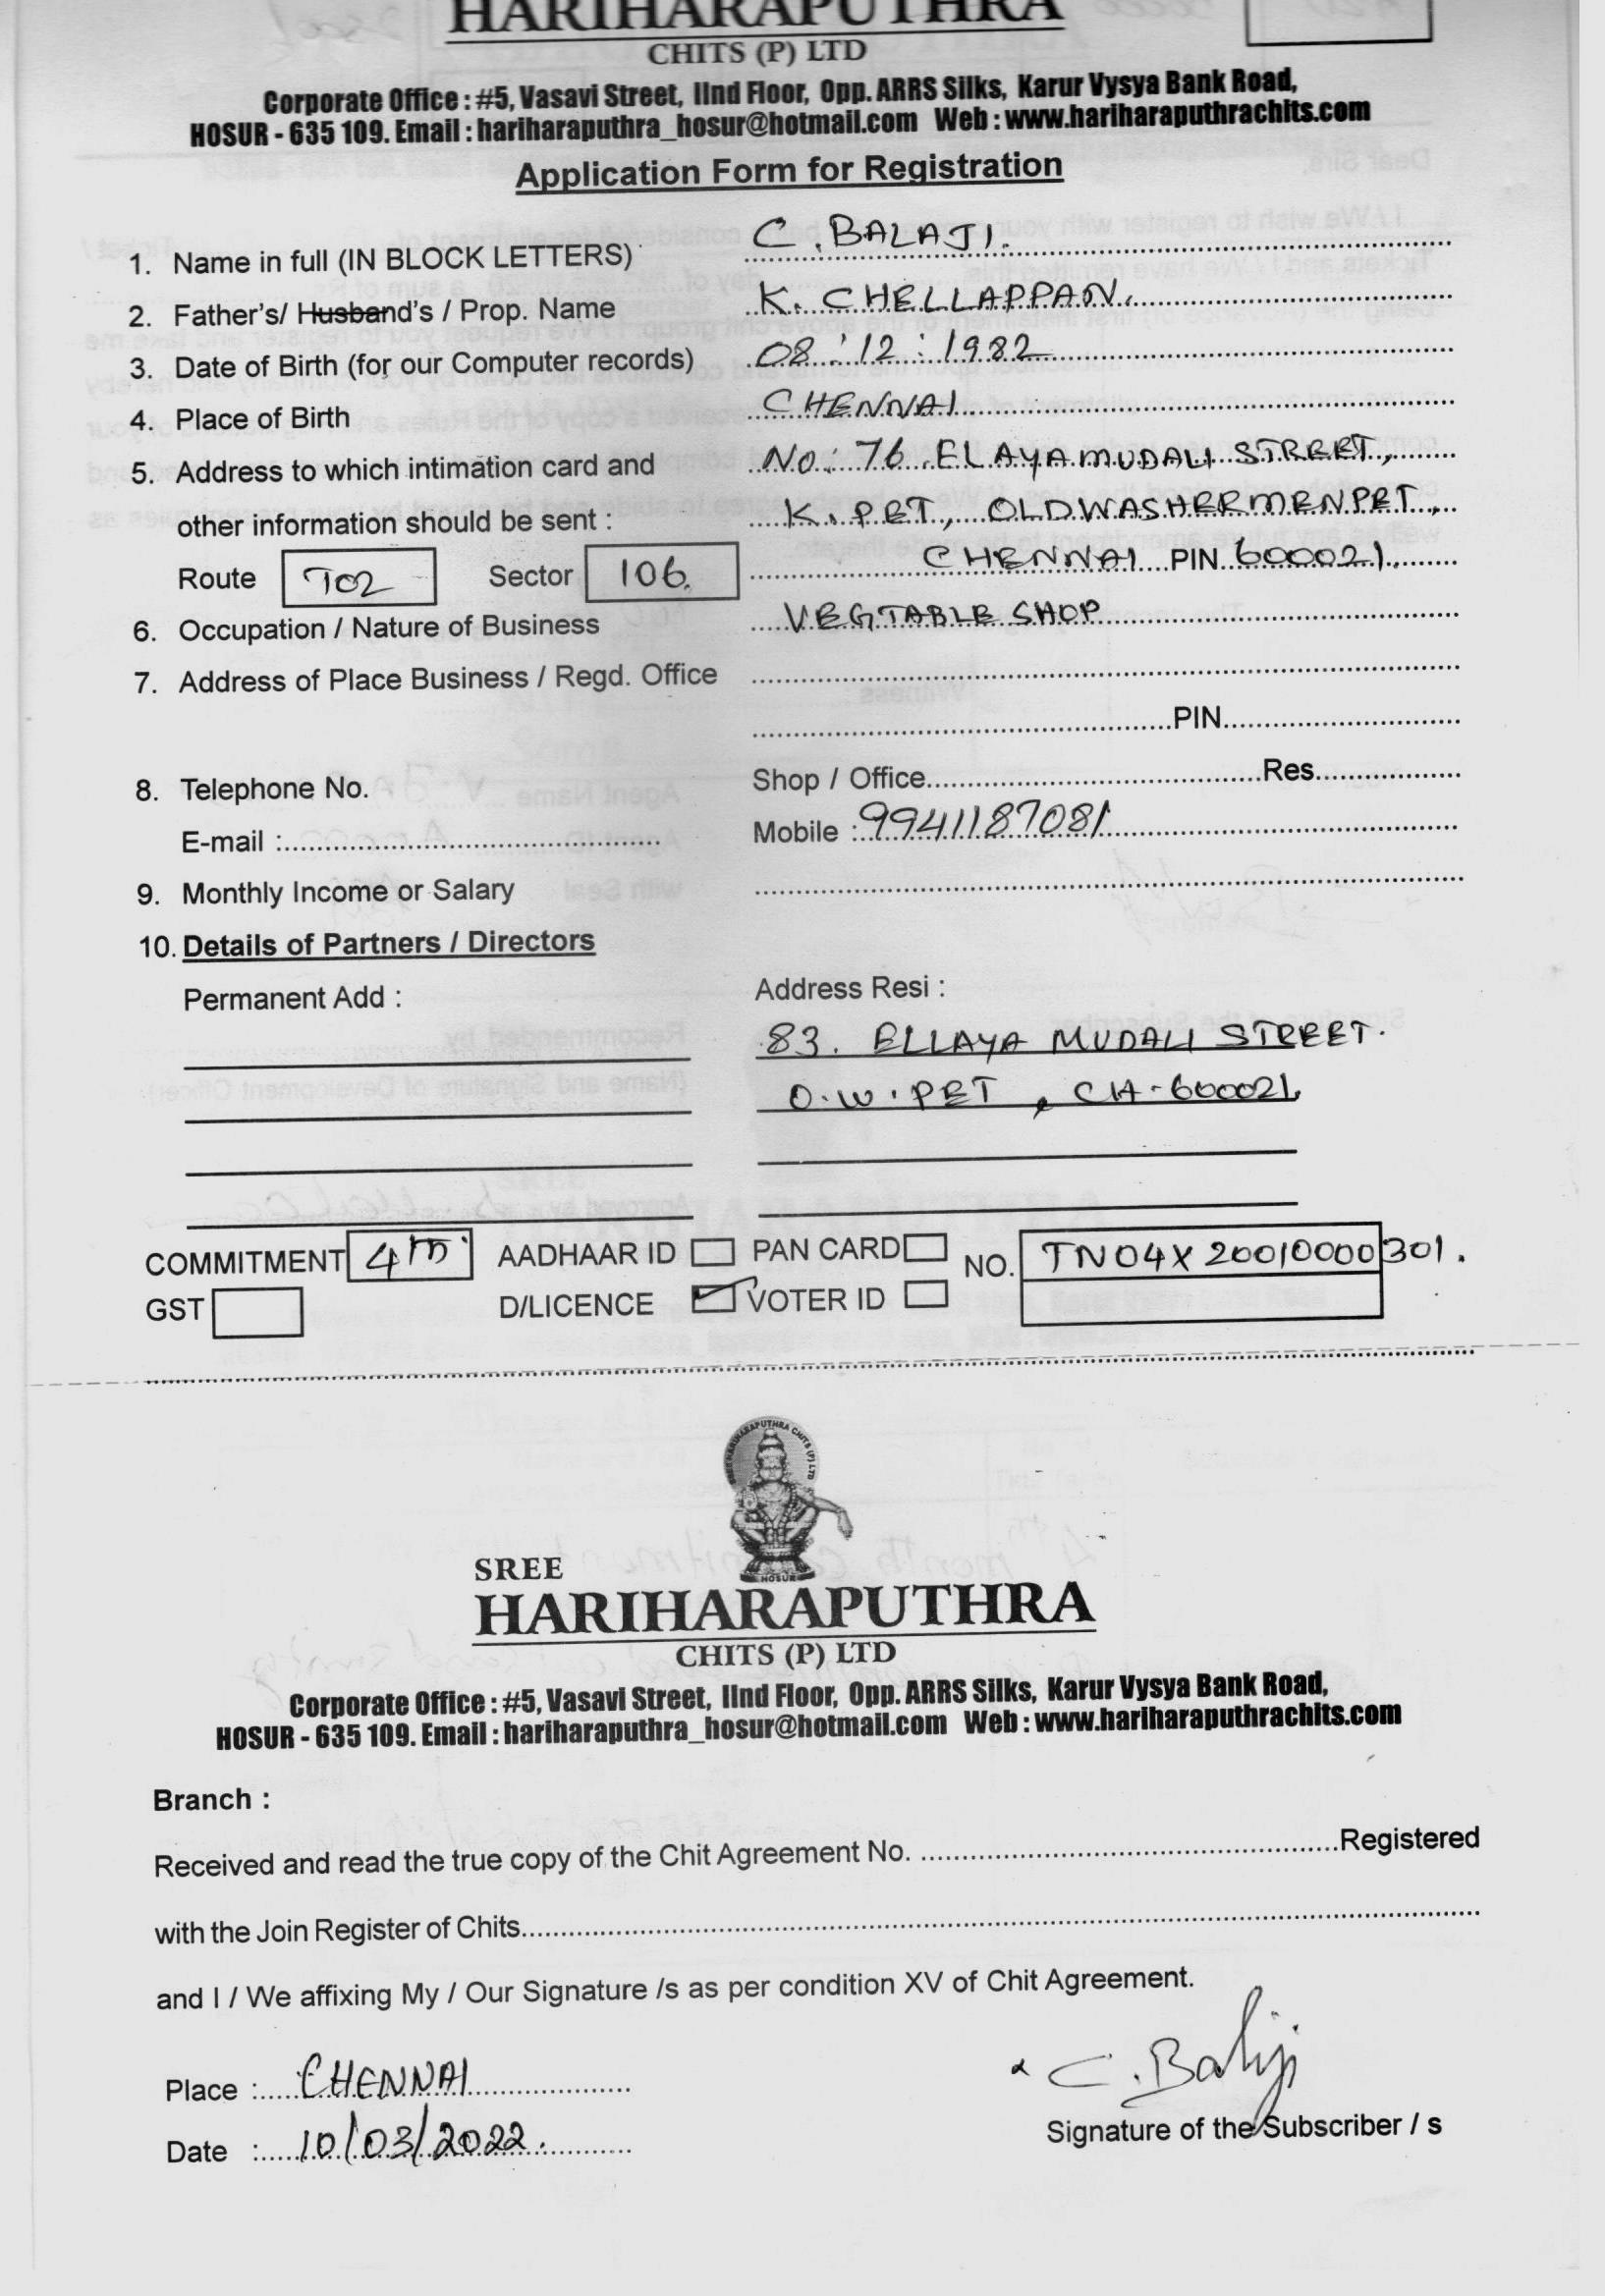 HARIHARAPUTHRA
CHITS (P) LTD
Corporate Office : #5, Vasavi Street, IInd Floor, Opp. ARRS Silks, Karur Vysya Bank Road,
HOSUR - 635 109. Email : hariharaputhra_hosur@hotmail.com Web : www.hariharaputhrachits.com
Application Form for Registration
1. Name in full (IN BLOCK LETTERS) C. BALAJI.
2. Father's/ Husband's / Prop. Name K. CHELLAPPAN.
3. Date of Birth (for our Computer records) 08 : 12 : 1982
4. Place of Birth CHENNAI
5. Address to which intimation card and No: 76 ELAYAMUDALI STREET,
other information should be sent : K. PET, OLDWASHERMENPET,
Route 702 Sector 106. CHENNAI PIN 600021.
6. Occupation / Nature of Business VEGTABLE SHOP
7. Address of Place Business / Regd. Office
PIN
8. Telephone No. Shop / Office Res
E-mail : Mobile : 9941187081
9. Monthly Income or Salary
10. Details of Partners / Directors
Permanent Add : Address Resi :
83. ELLAYA MUDALI STREET.
O.W.PET, CH-600021
COMMITMENT 4th AADHAAR ID PAN CARD NO. TN04X20010000301.
GST D/LICENCE VOTER ID
SREE HARIHARAPUTHRA CHITS (P) LTD
HOSUR
SREE
HARIHARAPUTHRA
CHITS (P) LTD
Corporate Office : #5, Vasavi Street, IInd Floor, Opp. ARRS Silks, Karur Vysya Bank Road,
HOSUR - 635 109. Email : hariharaputhra_hosur@hotmail.com Web : www.hariharaputhrachits.com
Branch :
Received and read the true copy of the Chit Agreement No. Registered
with the Join Register of Chits
and I / We affixing My / Our Signature /s as per condition XV of Chit Agreement.
Place : CHENNAI
C. Balaji
Date : 10/03/2022.
Signature of the Subscriber / s